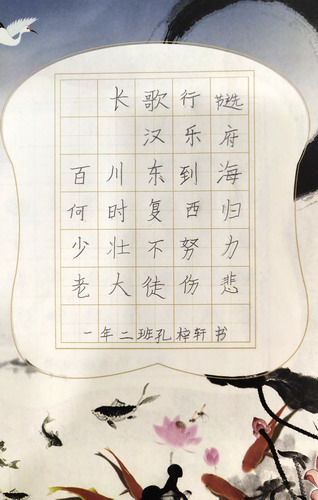 长歌行 节选
汉乐府
百川东到海
何时复西归
少壮不努力
老大徒伤悲
一年二班孔梓轩书